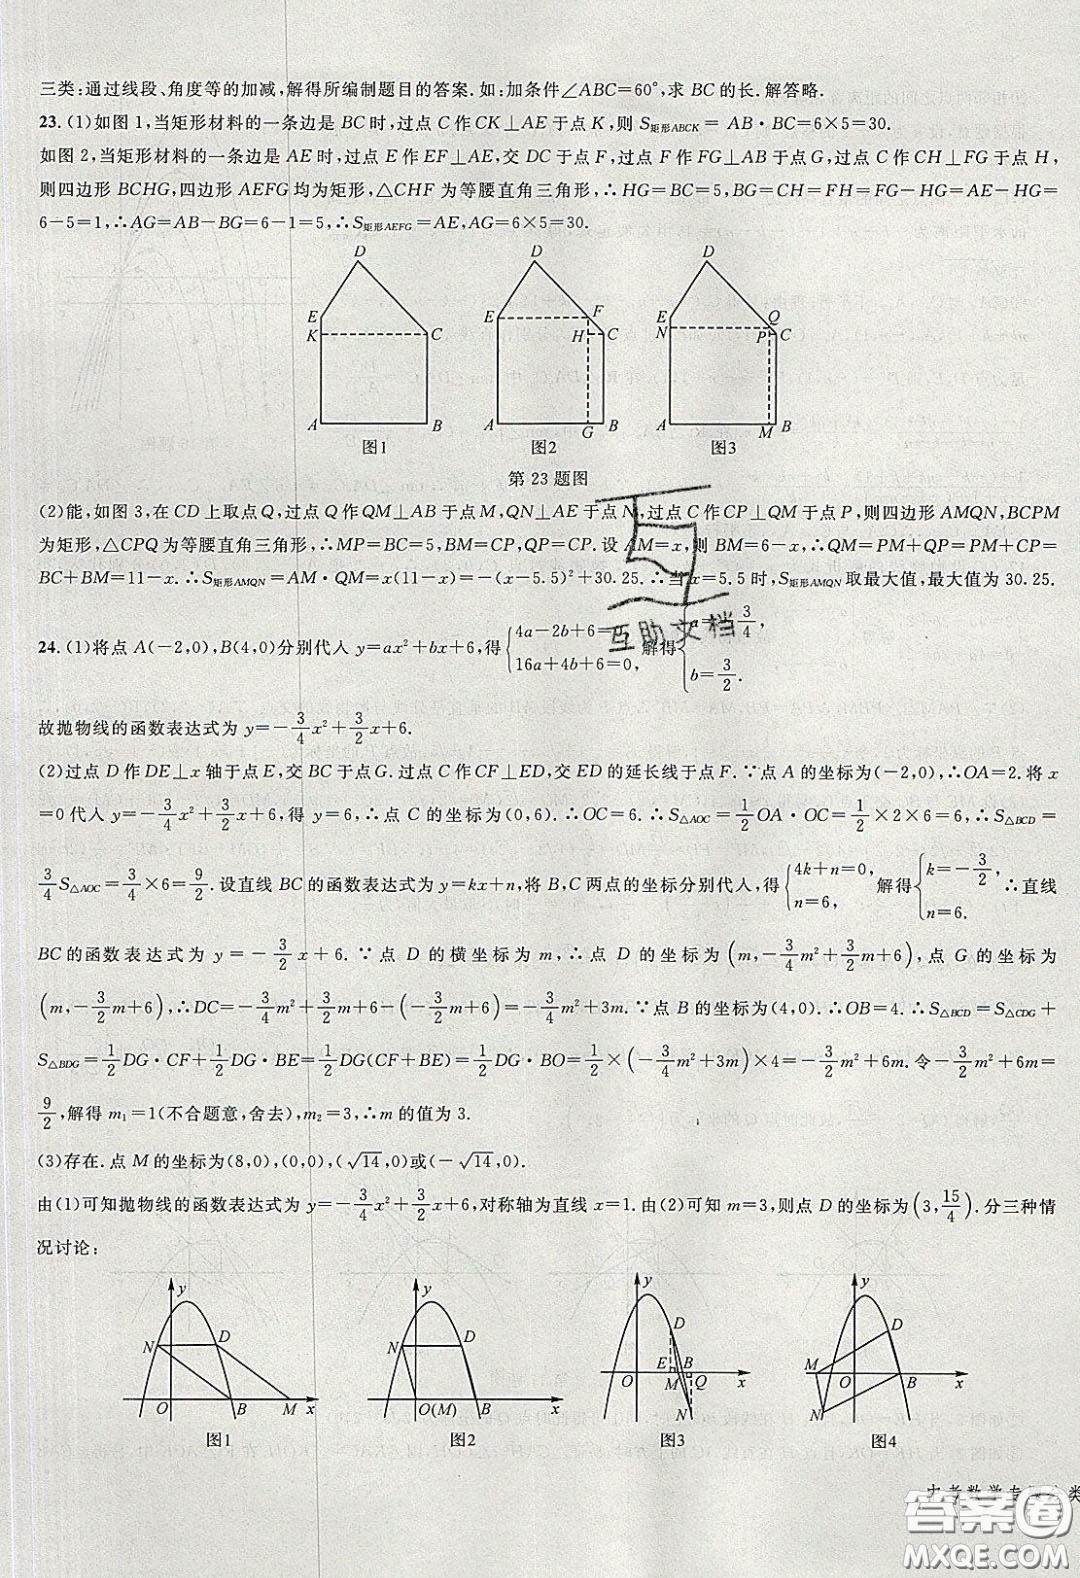 三类:通过线段、角度等的加减,解得所编制题目的答案.如:加条件∠ABC=60°,求 BC 的长.解答略.
23.(1)如图 1,当矩形材料的一条边是 BC 时,过点 C 作 CK⊥AE 于点 K,则 S矩形ABCK= AB·BC=6×5=30.
如图 2,当矩形材料的一条边是 AE 时,过点 E 作 EF⊥AE,交 DC 于点 F,过点 F 作 FG⊥AB 于点 G,过点 C 作 CH⊥FG 于点 H,
则四边形 BCHG,四边形 AEFG 均为矩形,△CHF 为等腰直角三角形,∴HG=BC=5,BG=CH=FH=FG-HG=AE-HG=
6-5=1,∴AG=AB-BG=6-1=5,∴S矩形AEFG=AE,AG=6×5=30.
D D D
E K C A B
E F H C A G B
E N Q P C A M B
图1 图2 图3
第 23 题图
(2)能,如图 3,在 CD 上取点 Q,过点 Q 作 QM⊥AB 于点 M,QN⊥AE 于点 N,过点 C 作 CP⊥QM 于点 P,则四边形 AMQN,BCPM
为矩形,△CPQ 为等腰直角三角形,∴MP=BC=5,BM=CP,QP=CP.设 AM=x,则 BM=6-x,∴QM=PM+QP=PM+CP=
BC+BM=11-x.∴S矩形AMQN=AM·QM=x(11-x)=-(x-5.5)²+30.25.∴当 x=5.5 时,S矩形AMQN 取最大值,最大值为 30.25.
互助文档
24.(1)将点 A(-2,0),B(4,0)分别代人 y=ax²+bx+6,得{4a-2b+6=0,16a+4b+6=0,解得{a=-3/4,b=3/2.
故抛物线的函数表达式为 y=-3/4x²+3/2x+6.
(2)过点 D 作 DE⊥x 轴于点 E,交 BC 于点 G.过点 C 作 CF⊥ED,交 ED 的延长线于点 F.∵点 A 的坐标为(-2,0),∴OA=2.将 x
=0 代人 y=-3/4x²+3/2x+6,得 y=6,∴点 C 的坐标为(0,6).∴OC=6.∴S△AOC=1/2OA·OC=1/2×2×6=6,∴S△BCD=
3/4S△AOC=3/4×6=9/2.设直线 BC 的函数表达式为 y=kx+n,将 B,C 两点的坐标分别代人,得{4k+n=0,n=6,解得{k=-3/2,n=6.∴直线
BC 的函数表达式为 y=-3/2x+6.∵点 D 的横坐标为 m,∴点 D 的坐标为(m,-3/4m²+3/2m+6),点 G 的坐标为
(m,-3/2m+6),∴DC=-3/4m²+3/2m+6-(-3/2m+6)=-3/4m²+3m.∵点 B 的坐标为(4,0).∴OB=4.∴S△BCD=S△CDG+
S△BDG=1/2DG·CF+1/2DG·BE=1/2DG(CF+BE)=1/2DG·BO=1/2×(-3/4m²+3m)×4=-3/2m²+6m.令-3/2m²+6m=
9/2,解得 m₁=1(不合题意,舍去),m₂=3,∴m 的值为 3.
(3)存在.点 M 的坐标为(8,0),(0,0),(√14,0)或(-√14,0).
由(1)可知抛物线的函数表达式为 y=-3/4x²+3/2x+6,对称轴为直线 x=1.由(2)可知 m=3,则点 D 的坐标为(3,15/4).分三种情
况讨论:
y N D O B M x
y N D O(M) B x
y D E B O M Q x N
y D M O B x N
图1 图2 图3 图4
答案圈
MXQE.COM